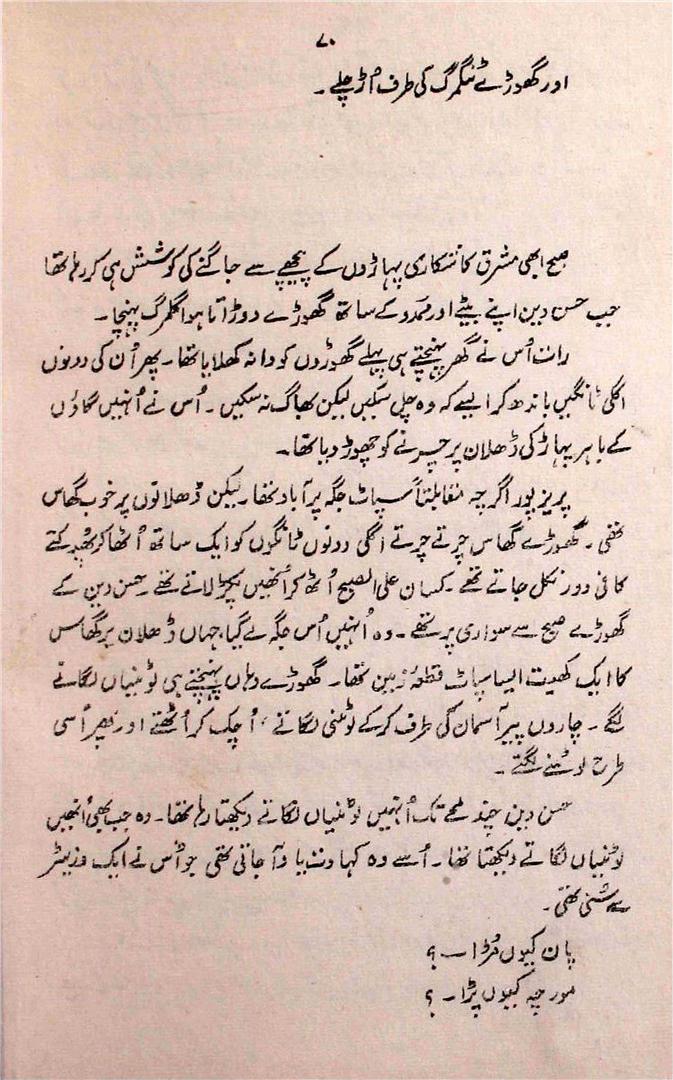 ۷۰
اور گھوڑے ٹنگمرگ کی طرف اُڑ چلے ۔
صبح ابھی مشرق کا شکاری پہاڑوں کے پیچھے سے جاگنے کی کوشش ہی کر رہا تھا
جب حسن دین اپنے بیٹے اور ممدو کے ساتھ گھوڑے دوڑاتا ہوا گلمرگ پہنچا ۔
رات اُس نے گھر پہنچتے ہی پہلے گھوڑوں کو دانہ کھلایا تھا ۔ پھر اُن کی دونوں
اگلی ٹانگیں باندھ کر ایسے کہ وہ چل سکیں لیکن بھاگ نہ سکیں ۔ اُس نے اُنہیں گاؤں
کے باہر پہاڑ کی ڈھلان پر چرنے کو چھوڑ دیا تھا ۔
پریز پور اگرچہ مقابلتاً سپاٹ جگہ پر آباد تھا ۔ لیکن ڈھلانوں پر خوب گھاس
تھی ۔ گھوڑے گھاس چرتے چرتے اگلی دونوں ٹانگوں کو ایک ساتھ اُٹھا کر پھُدکتے
کافی دور نکل جاتے تھے ۔ کسان علی الصبح اُٹھ کر اُنھیں پکڑ لاتے تھے ۔ حسن دین کے
گھوڑے صبح سے سواری پر تھے ۔ وہ اُنہیں اُس جگہ لے گیا، جہاں ڈھلان پر گھاس
کا ایک کھیت ایسا سپاٹ قطعۂ زمین تھا ۔ گھوڑے وہاں پہنچتے ہی لوٹنیاں لگانے
لگے ۔ چاروں پیر آسمان کی طرف کرکے لوٹنی لگاتے ، اُچک کر اُٹھتے اور پھر اُسی
طرح لوٹنے لگتے ۔
حسن دین چند لمحے تک اُنہیں لوٹنیاں لگاتے دیکھتا رہا تھا ۔ وہ جب بھی اُنھیں
لوٹنیاں لگاتے دیکھتا تھا ۔ اُسے وہ کہاوت یاد آ جاتی تھی جو اُس نے ایک وزیٹر
سے سُنی تھی ۔
پان کیوں سڑا ۔۔ ؟
مورچہ کیوں پڑا ۔ ؟